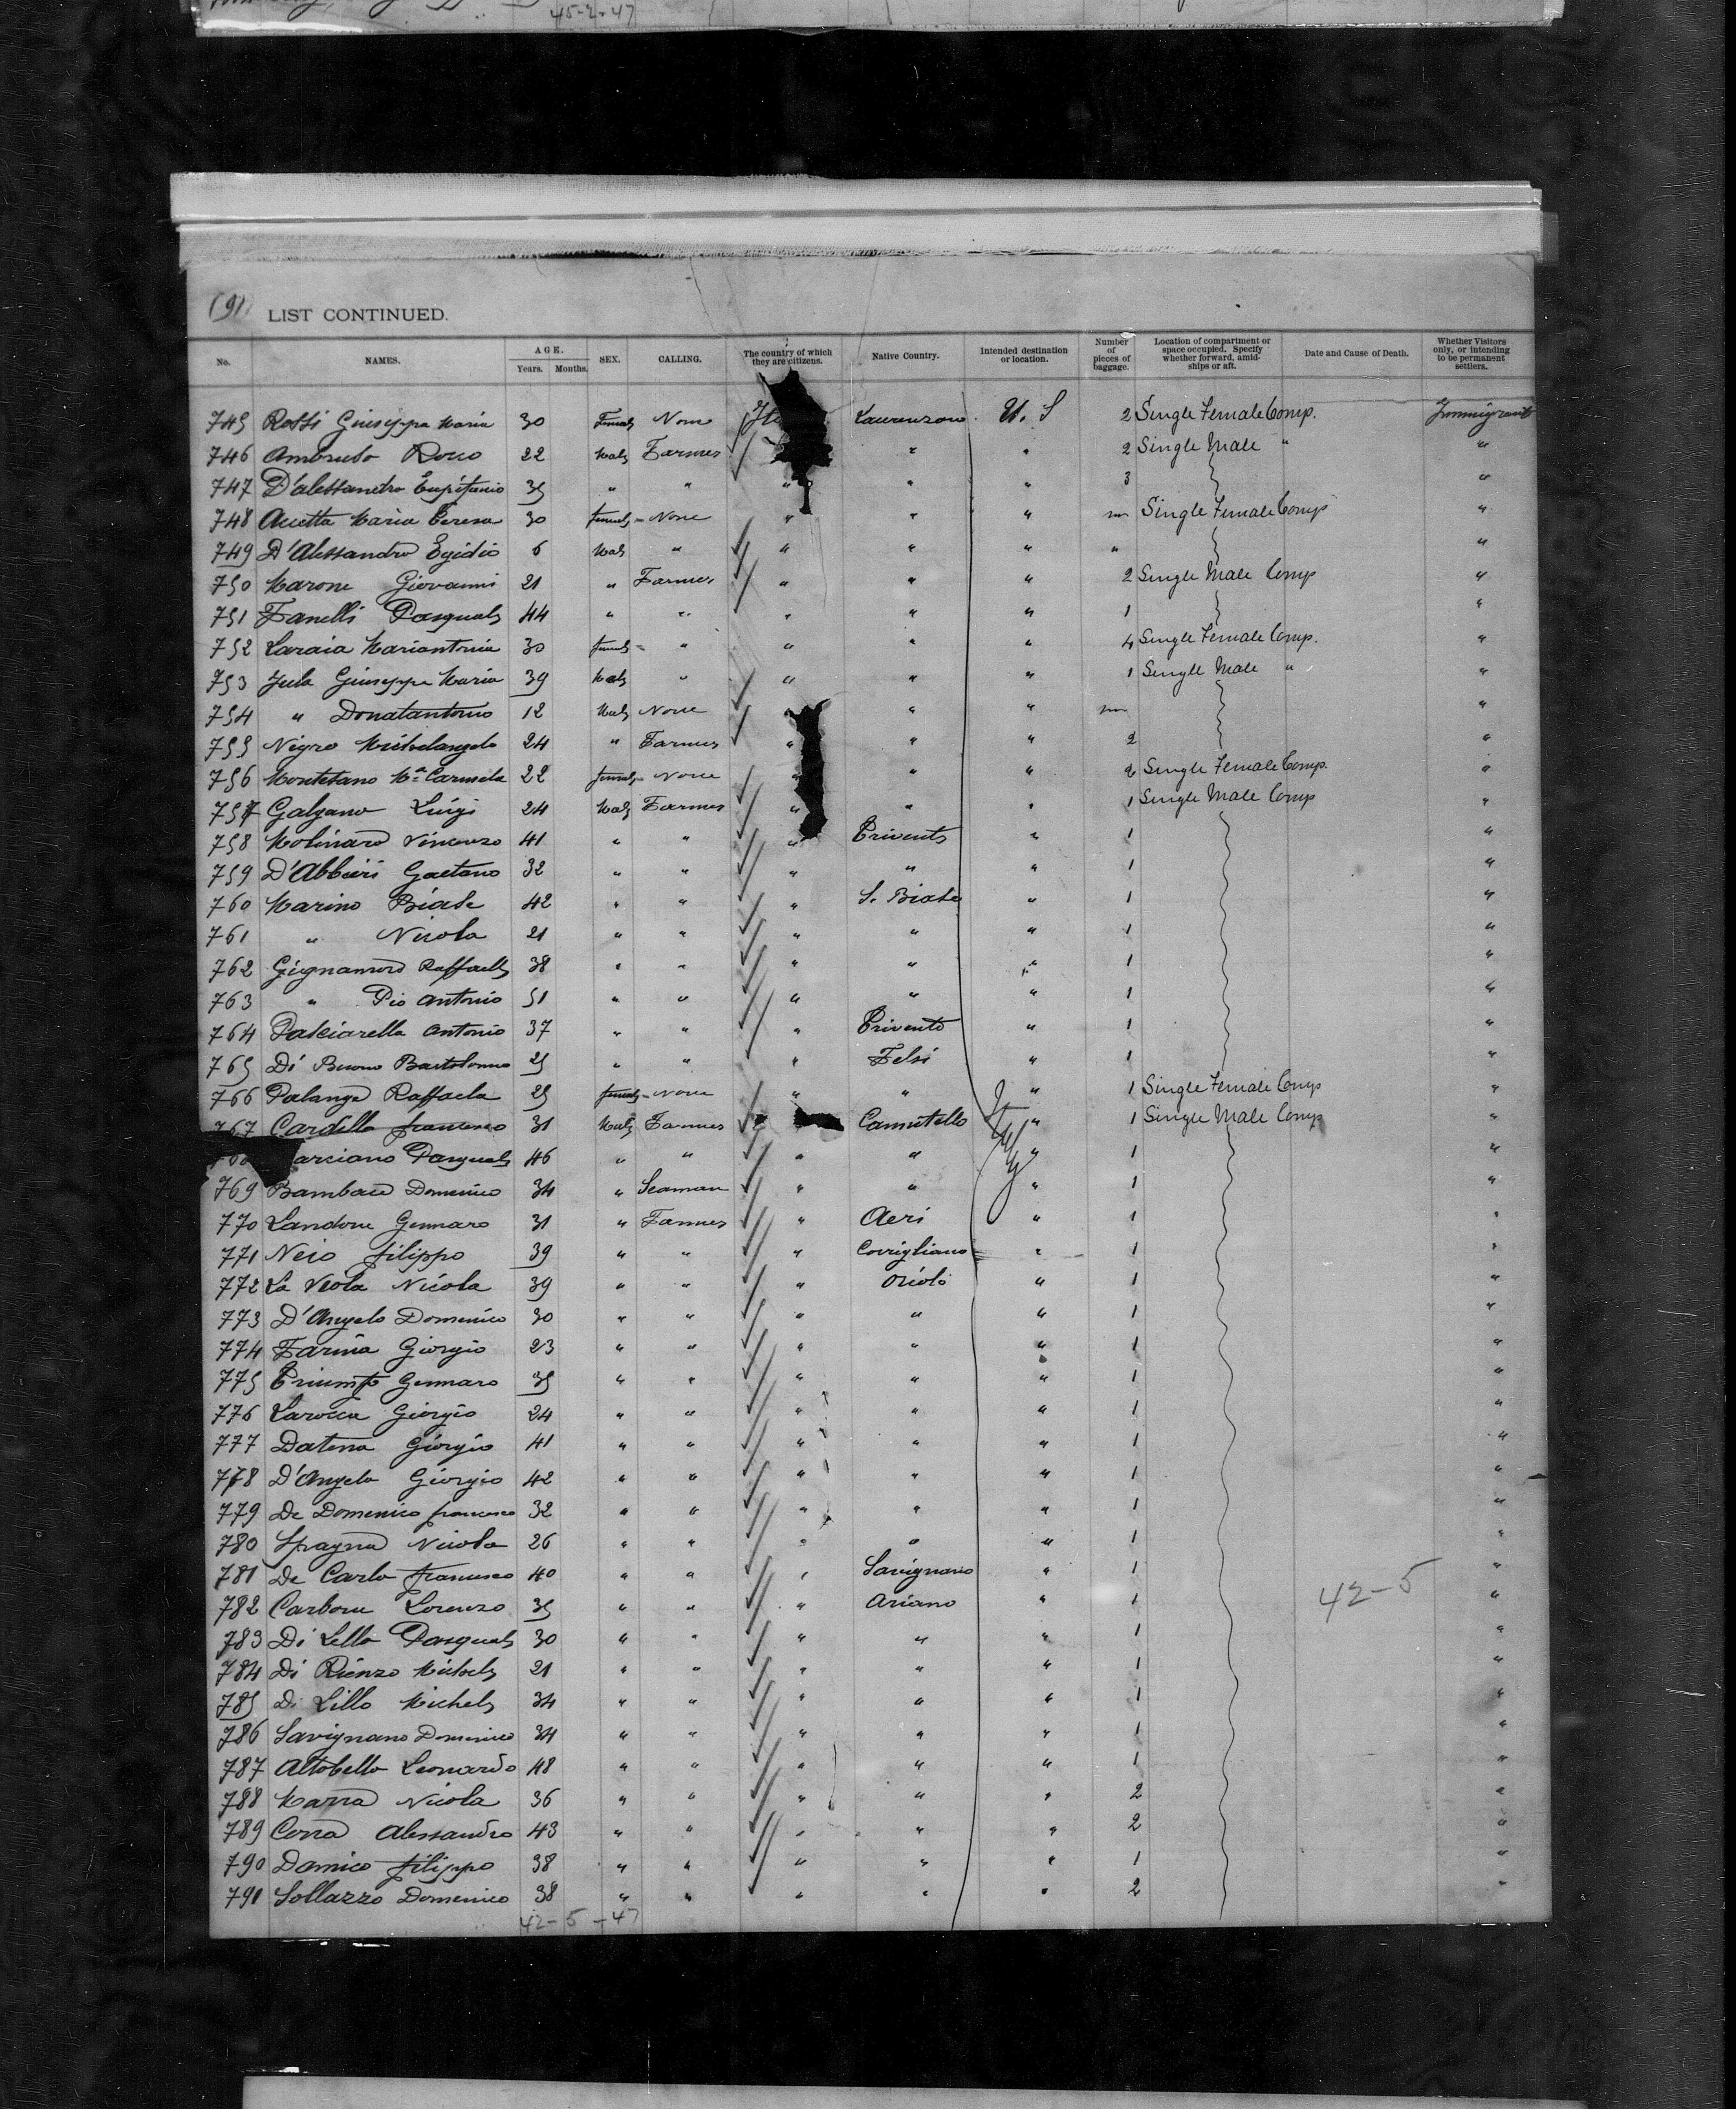 45-2-47
(9) LIST CONTINUED.
No. NAMES. AGE. Years. Months. SEX. CALLING. The country of which they are citizens. Native Country. Intended destination or location. Number of pieces of baggage. Location of compartment or space occupied. Specify whether forward, amidships or aft. Date and Cause of Death. Whether Visitors only, or intending to be permanent settlers.
745 Rossi Giuseppa Maria 30 Female None U. S 2 Single Female Comp. Immigrant
746 Rocco 22 Male Farmer " " 2 Single Male " "
747 D'alessandro 35 " " " " " 3 "
748 Maria Teresa 30 female None " " " Single Female Comp "
749 D'Alessandro Egidio 6 Male " " " " " "
750 Marone Giovanni 21 " Farmer " " " 2 Single Male Comp "
751 Fanelli Pasquale 44 " " " " " 1 "
752 Laraia Mariantonia 30 female " " " " 4 Single Female Comp. "
753 Giuseppe Maria 39 Male " " " " 1 Single Male " "
754 " Donatantonio 12 Male None " " "
755 Nigro Michelangelo 24 " Farmer " " " 2 "
756 Montesano Mª Carmela 22 female None " " " 2 Single Female Comp. "
757 Galgano Luigi 24 Male Farmer " " " 1 Single Male Comp "
758 Molinaro Vincenzo 41 " " " Trivento " 1 "
759 Gaetano 32 " " " " " 1 "
760 Marino Biase 42 " " " S. Biase " 1 "
761 " Nicola 21 " " " " " 1 "
762 Raffaele 38 " " " " " 1 "
763 " Pio Antonio 51 " " " " " 1 "
764 Antonio 37 " " " Trivento " 1 "
765 Di Buono Bartolomeo 25 " " " " 1 "
766 Palange Raffaela 25 female None " " " 1 Single Female Comp "
767 Cardillo francesco 31 Male Farmer " " 1 Single Male Comp "
arciano Pasquale 46 " " " " " 1 "
769 Domenico 34 " Seaman " " " 1 "
770 Landone Gennaro 31 " Farmer " Aeri " 1 "
771 filippo 39 " " " Corrigliano " 1 "
772 La Nicola 39 " " " Oriolo " 1 "
773 D'Angelo Domenico 30 " " " " " 1 "
774 Farina Giorgio 23 " " " " " 1 "
775 Gennaro 35 " " " " " 1 "
776 Larocca Giorgio 24 " " " " " 1 "
777 Datena Giorgio 41 " " " " " 1 "
778 D'Angelo Giorgio 42 " " " " " 1 "
779 De Domenico francesco 32 " " " " " 1 "
780 Spagna Nicola 26 " " " " " 1 "
781 De Carlo francesco 40 " " " Savignano " 1 "
782 Carbone Lorenzo 35 " " " Ariano " 1 42-5 "
783 Di Lello Pasquale 30 " " " " " 1 "
784 Di Rienzo Michele 21 " " " " " 1 "
785 Di Lillo Michele 34 " " " " " 1 "
786 Savignano Domenico 34 " " " " " 1 "
787 Altobello Leonardo 48 " " " " " 1 "
788 Marra Nicola 36 " " " " " 2 "
789 Alessandro 43 " " " " " 2 "
790 Damico filippo 38 " " " " " 1 "
791 Sollazzo Domenico 38 " " " " " 2 "
42-5-47